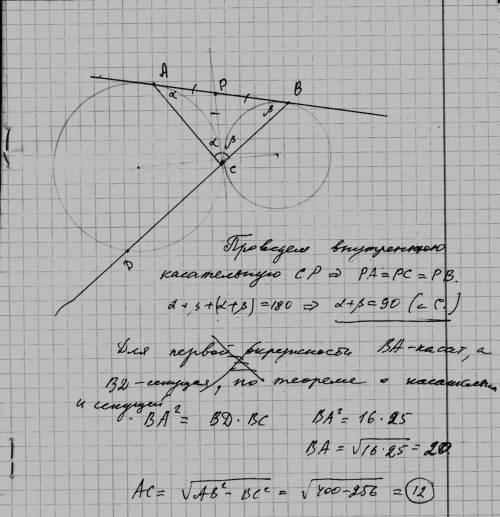 A
P
B
α
β
α β
C
D
Проведем внутреннюю
касательную CP ⇒ PA=PC=PB.
α+β+(α+β)=180 ⇒ α+β=90 (∠C.)
Для первой окружности BA-касат, а
BD-секущая, по теореме о касательной
и секущей
BA² = BD·BC BA²=16·25
BA=√16·25=20
AC= √AB²-BC² = √400-256 = 12